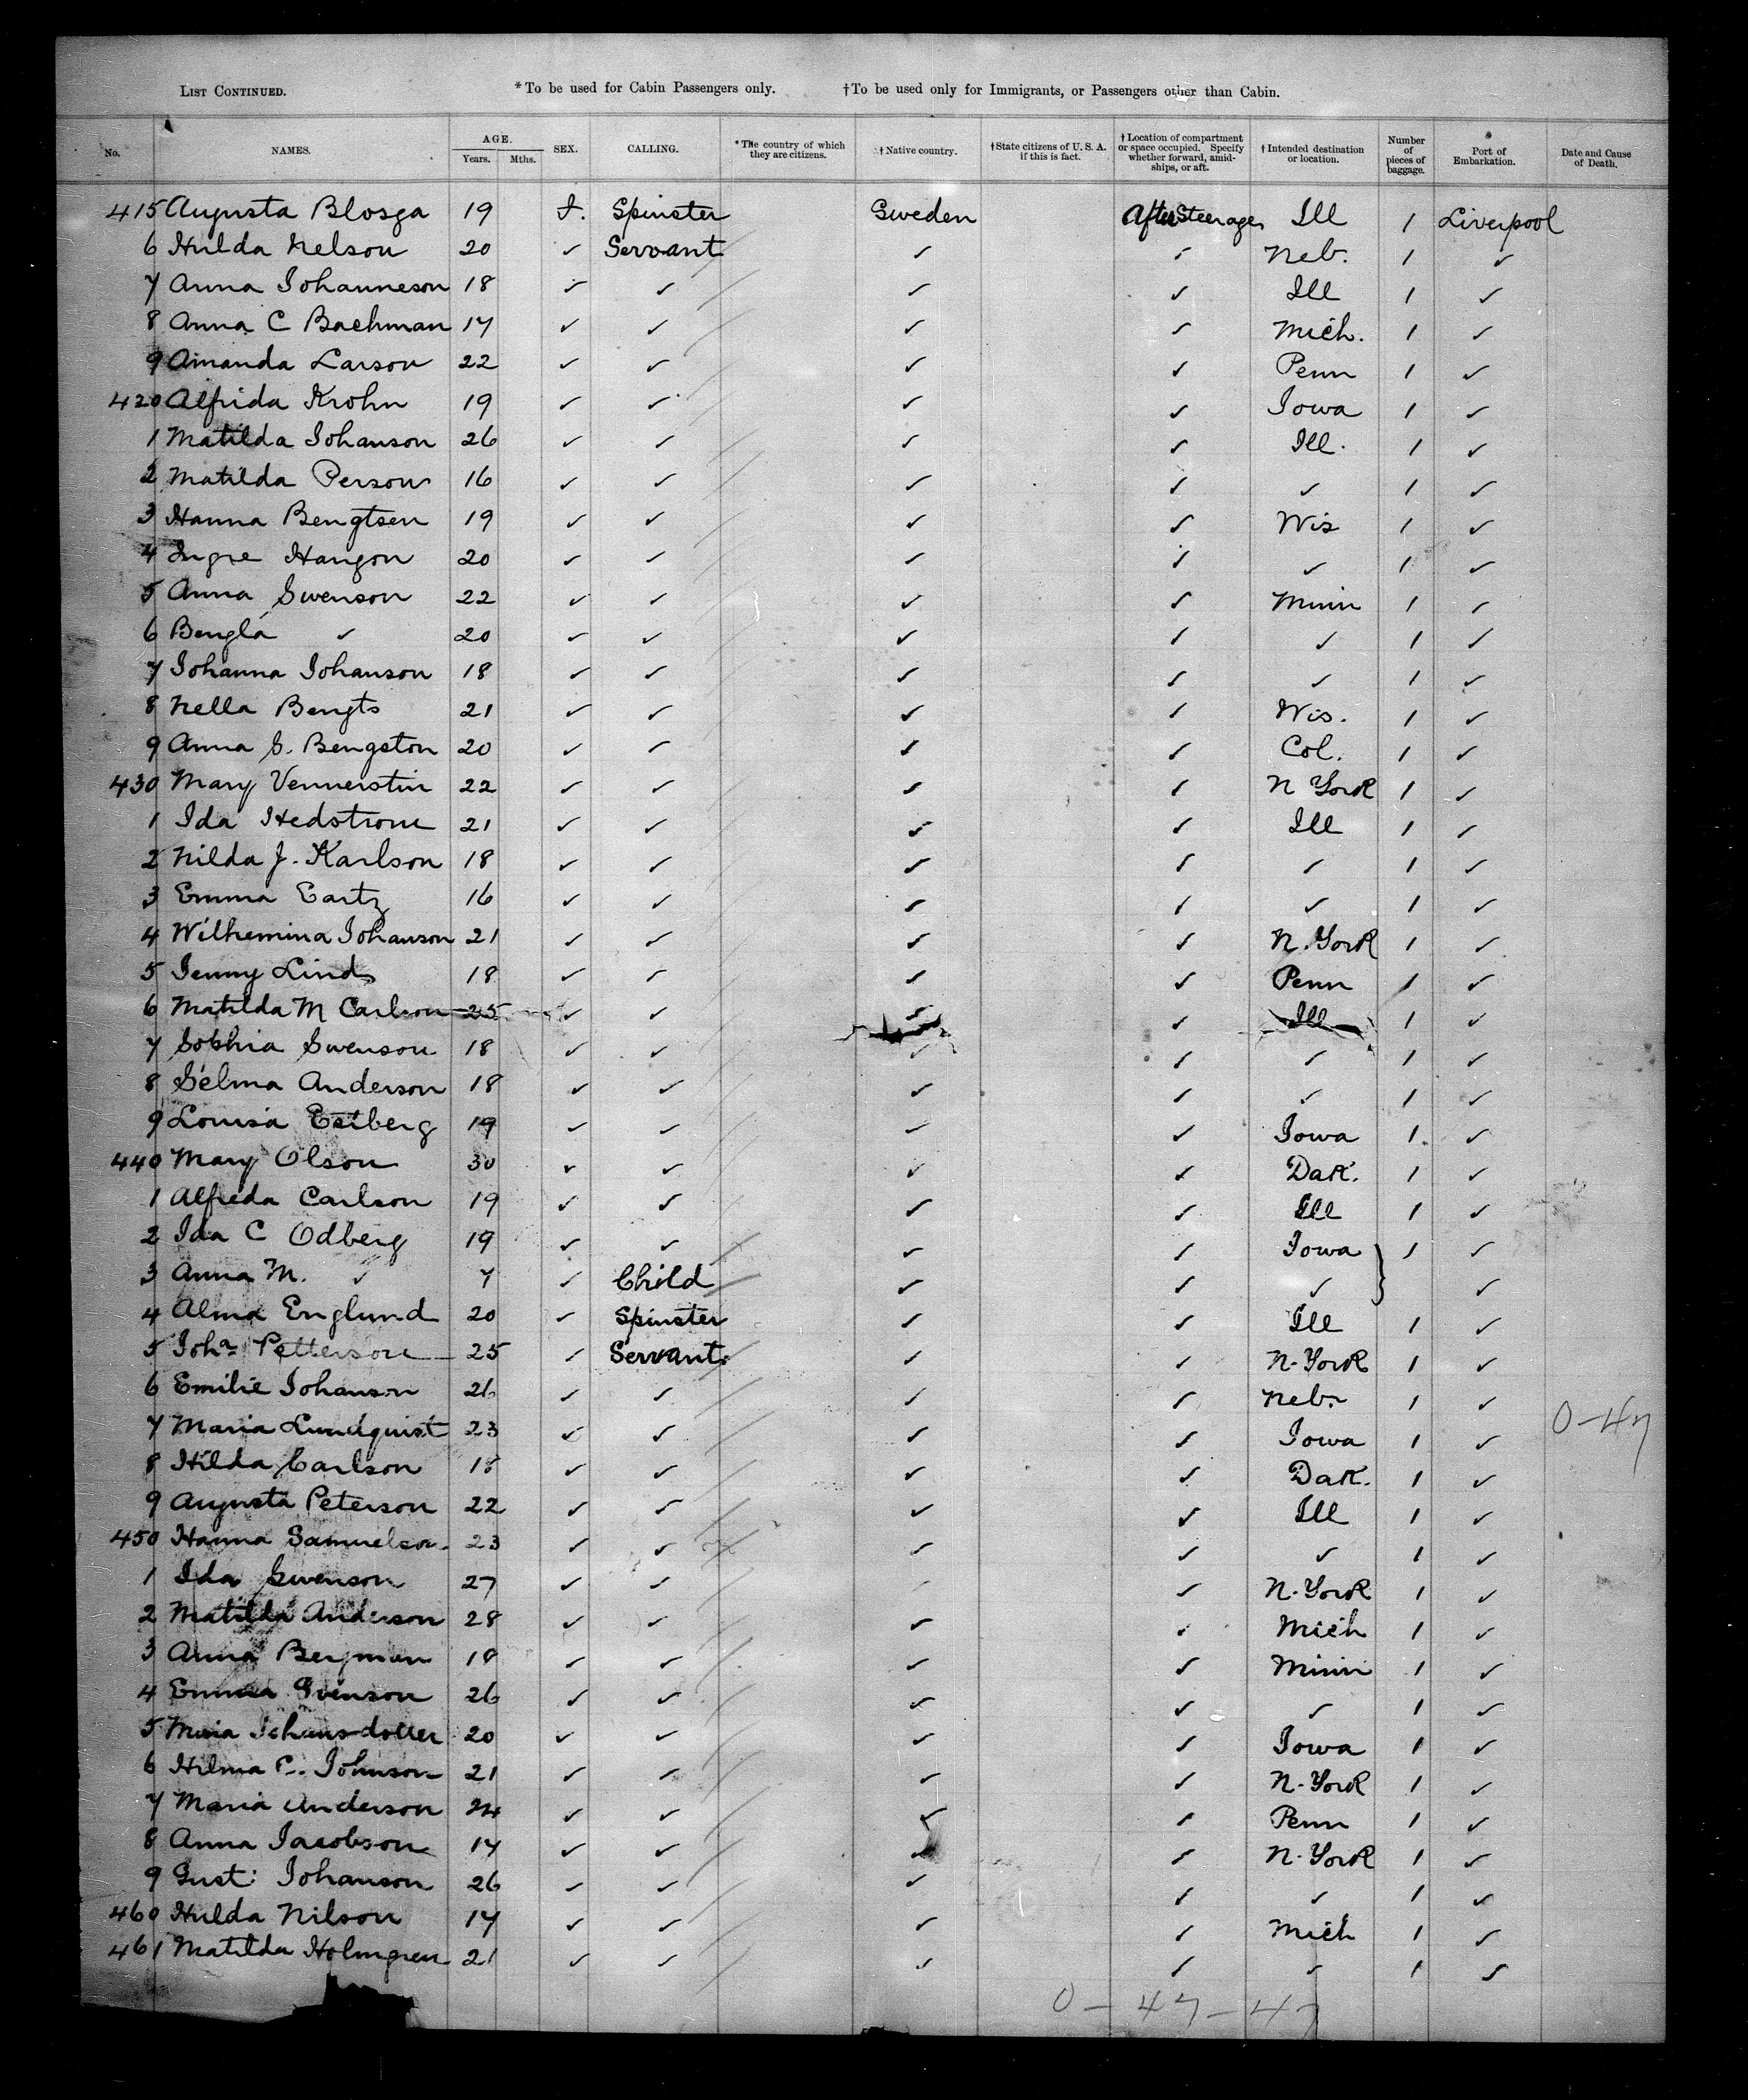 LIST CONTINUED. *To be used for Cabin Passengers only. †To be used only for Immigrants, or Passengers other than Cabin.
No. NAMES. AGE. Years. Mths. SEX. CALLING. *The country of which they are citizens. †Native country. †State citizens of U. S. A. if this is fact. †Location of compartment or space occupied. Specify whether forward, amidships, or aft. †Intended destination or location. Number of pieces of baggage. * Port of Embarkation. Date and Cause of Death.
415 Augusta Blosga 19 F. Spinster Sweden After Steerage Ill 1 Liverpool
6 Hulda Nelson 20 ✓ Servant ✓ ✓ Neb. 1 ✓
7 Anna Johanneson 18 ✓ ✓ ✓ ✓ Ill 1 ✓
8 Anna C Bachman 17 ✓ ✓ ✓ ✓ Mich. 1 ✓
9 Amanda Larson 22 ✓ ✓ ✓ ✓ Penn 1 ✓
420 Alfrida Krohn 19 ✓ ✓ ✓ ✓ Iowa 1 ✓
1 Matilda Johanson 26 ✓ ✓ ✓ ✓ Ill. 1 ✓
2 Matilda Person 16 ✓ ✓ ✓ ✓ ✓ 1 ✓
3 Hanna Bengtsen 19 ✓ ✓ ✓ ✓ Wis 1 ✓
4 Ingre Hangon 20 ✓ ✓ ✓ ✓ ✓ 1 ✓
5 Anna Swenson 22 ✓ ✓ ✓ ✓ Minn 1 ✓
6 Bengla ✓ 20 ✓ ✓ ✓ ✓ ✓ 1 ✓
7 Johanna Johanson 18 ✓ ✓ ✓ ✓ ✓ 1 ✓
8 Nella Bengts 21 ✓ ✓ ✓ ✓ Wis. 1 ✓
9 Anna S. Bengston 20 ✓ ✓ ✓ ✓ Col. 1 ✓
430 Mary Vennerstin 22 ✓ ✓ ✓ ✓ N York 1 ✓
1 Ida Hedstrom 21 ✓ ✓ ✓ ✓ Ill 1 ✓
2 Nilda J. Karlson 18 ✓ ✓ ✓ ✓ ✓ 1 ✓
3 Emma Eartz 16 ✓ ✓ ✓ ✓ ✓ 1 ✓
4 Wilhemina Johanson 21 ✓ ✓ ✓ ✓ N. York 1 ✓
5 Jenny Lind 18 ✓ ✓ ✓ ✓ Penn 1 ✓
6 Matilda M Carlson 25 ✓ ✓ ✓ ✓ Ill 1 ✓
7 Sophia Swenson 18 ✓ ✓ ✓ ✓ ✓ 1 ✓
8 Selma Anderson 18 ✓ ✓ ✓ ✓ ✓ 1 ✓
9 Louisa Estberg 19 ✓ ✓ ✓ ✓ Iowa 1 ✓
440 Mary Olson 30 ✓ ✓ ✓ ✓ Dak. 1 ✓
1 Alfreda Carlson 19 ✓ ✓ ✓ ✓ Ill 1 ✓
2 Ida C Odberg 19 ✓ ✓ ✓ ✓ Iowa 1 ✓
3 Anna M. ✓ 7 ✓ Child ✓ ✓ ✓ ✓
4 Alma Englund 20 ✓ Spinster ✓ ✓ Ill 1 ✓
5 Joha Petterson 25 ✓ Servant ✓ ✓ N. York 1 ✓
6 Emilie Johanson 26 ✓ ✓ ✓ ✓ Neb. 1 ✓
7 Maria Lundquist 23 ✓ ✓ ✓ ✓ Iowa 1 ✓ 0-47
8 Hilda Carlson 18 ✓ ✓ ✓ ✓ Dak. 1 ✓
9 Augusta Peterson 22 ✓ ✓ ✓ ✓ Ill 1 ✓
450 Hanna Samuelson 23 ✓ ✓ ✓ ✓ ✓ 1 ✓
1 Ida Swenson 27 ✓ ✓ ✓ N. York 1 ✓
2 Matilda Anderson 28 ✓ ✓ ✓ ✓ Mich 1 ✓
3 Anna Bergman 18 ✓ ✓ ✓ ✓ Minn 1 ✓
4 Emma Svenson 26 ✓ ✓ ✓ ✓ ✓ 1 ✓
5 Maria Johansdotter 20 ✓ ✓ ✓ ✓ Iowa 1 ✓
6 Hilma C. Johnson 21 ✓ ✓ ✓ ✓ N. York 1 ✓
7 Maria Anderson 24 ✓ ✓ ✓ ✓ Penn 1 ✓
8 Anna Jacobson 17 ✓ ✓ ✓ ✓ N. York 1 ✓
9 Gust: Johanson 26 ✓ ✓ ✓ ✓ ✓ 1 ✓
460 Hulda Nilson 17 ✓ ✓ ✓ ✓ Mich 1 ✓
461 Matilda Holmgren 21 ✓ ✓ ✓ ✓ ✓ 1 ✓
0-47-47